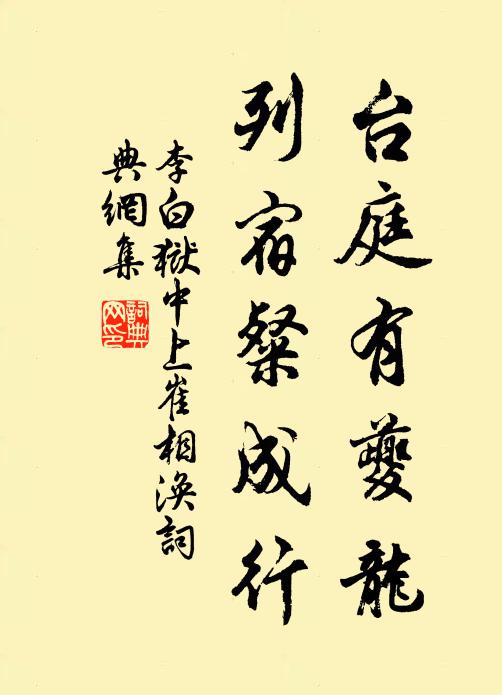 台庭有夔龍
列宿粲成行
李白獄中上崔相渙詞
典網集
詞典
网印